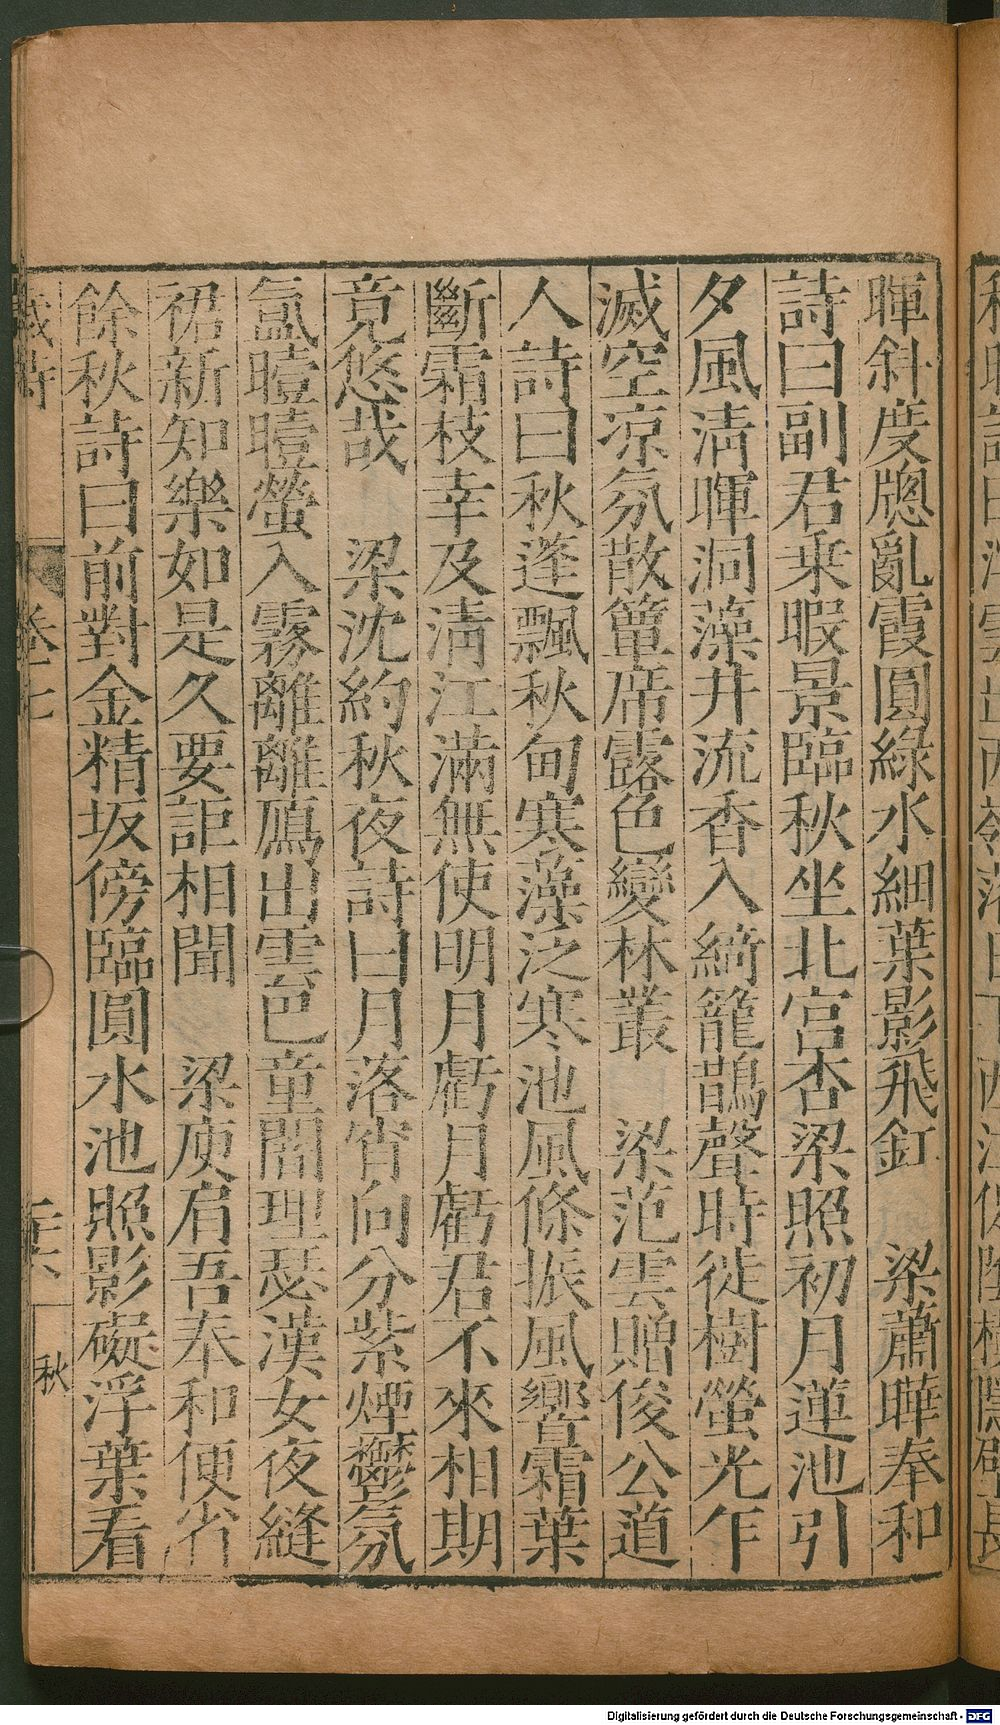 暉斜度牕亂霞圓綠水細葉影飛釭　梁蕭曄奉和
詩曰副君乘暇景臨秋坐北宮杏梁照初月蓮池引
夕風清暉洞藻井流香入綺籠鵲聲時徙樹螢光乍
滅空凉氛散簟席露色變林叢　梁范雲贈俊公道
人詩曰秋蓬飄秋甸寒藻泛寒池風條振風響霜葉
斷霜枝幸及清江滿無使明月虧月虧君不來相期
竟悠哉　梁沈約秋夜詩曰月落宵向分紫煙鬱氛
氳曀曀螢入霧離離鴈出雲色童閣理瑟漢女夜縫
裙新知樂如是久要詎相聞　梁庾肩吾奉和便省
餘秋詩曰前對金精坂傍臨圓水池照影礙浮葉看
秋
Digitalisierung gefördert durch die Deutsche Forschungsgemeinschaft - DFG